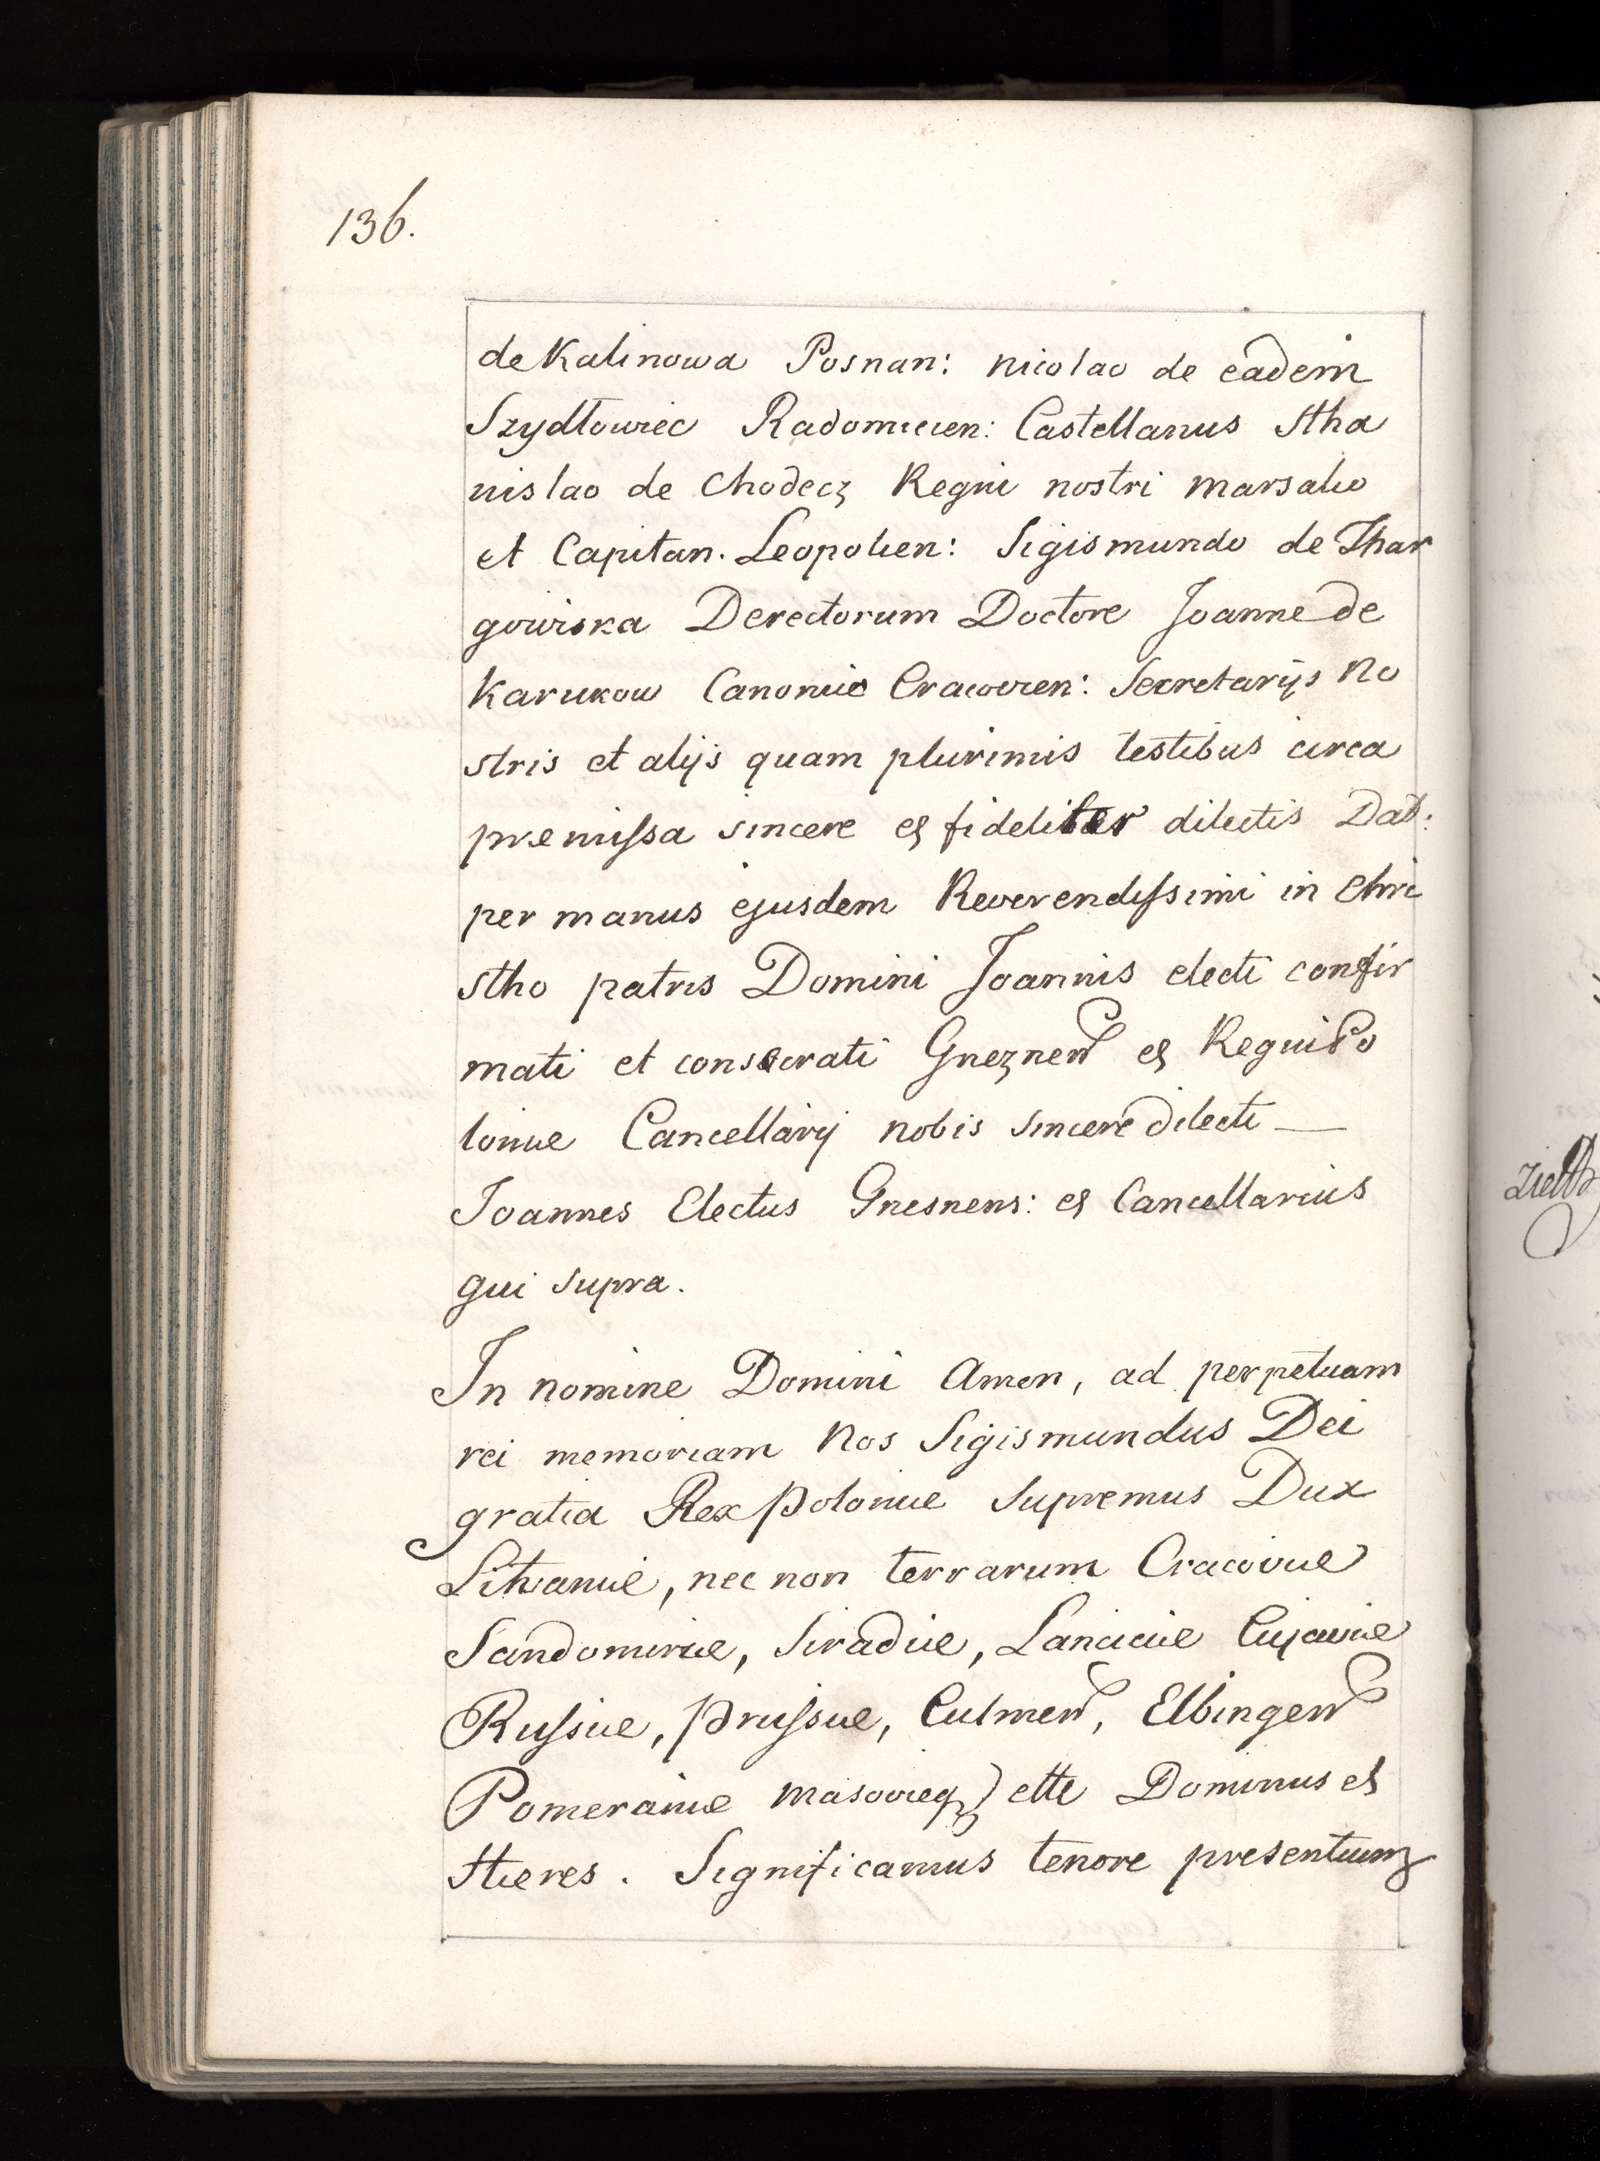 136.
de Kalinowa Posnan: Nicolao de eadem
Szydłowiec Radomicien: Castellanus Stha
nislao de Chodecz Regni nostri Marsalio
et Capitan. Leopolien: Sigismundo de Thar
gowiska Derectorum Doctore Joanne de
Karukow Canonic Cracovien: Secretarijs No
stris et alijs quam plurimis testibus circa
premissa sincere et fideliter dilectis Dat:
per manus ejusdem Reverendissimi in Chri
stho patris Domini Joannis electi confir
mati et consecrati Gneznen et Regni Po
lonie Cancellarij nobis sincere dilecti —
Joannes Electus Gnesnens: et Cancellarius
qui supra.
In nomine Domini Amen, ad perpetuam
rei memoriam Nos Sigismundus Dei
gratia Rex Polonie Supremus Dux
Lithvanie, nec non terrarum Cracovie
Sandomirie, Siradie, Lancicie Cujavie
Russie, Prussie, Culmen, Elbingen
Pomeranie Masovieq ette Dominus et
Hæres. Significamus tenore presentium